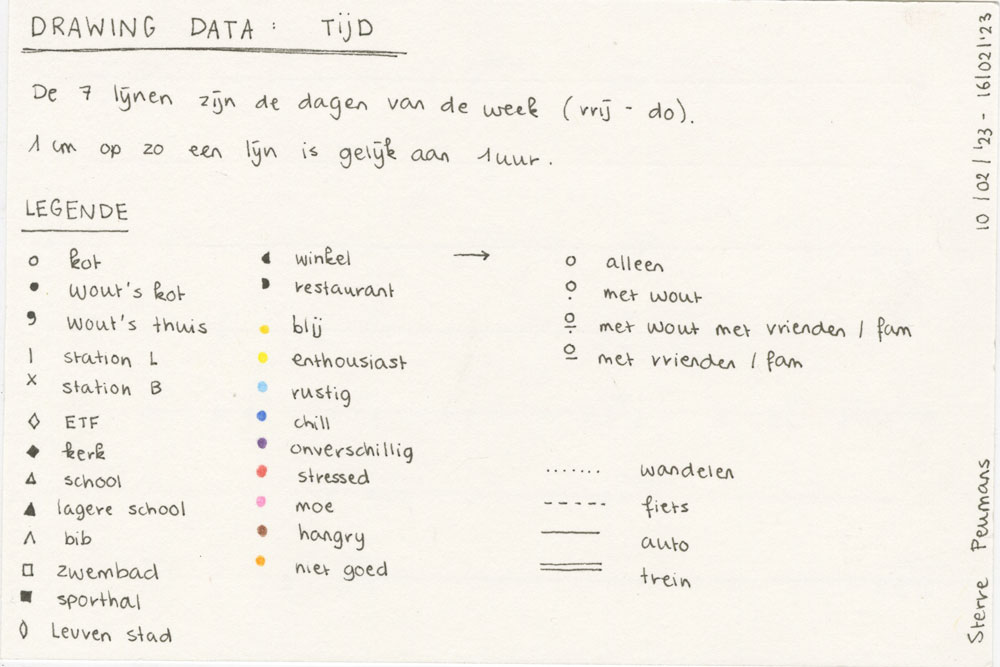 DRAWING DATA: TIJD
De 7 lijnen zijn de dagen van de week (vrij - do).
1 cm op zo een lijn is gelijk aan 1 uur.
LEGENDE
kot
wout's kot
wout's thuis
station L
station B
ETF
kerk
school
lagere school
bib
zwembad
sporthal
Leuven stad
winkel →
restaurant
blij
enthousiast
rustig
chill
onverschillig
stressed
moe
hangry
niet goed
alleen
met wout
met wout met vrienden / fam
met vrienden / fam
wandelen
fiets
auto
trein
10/02/'23 - 16/02/'23
Sterre Peumans